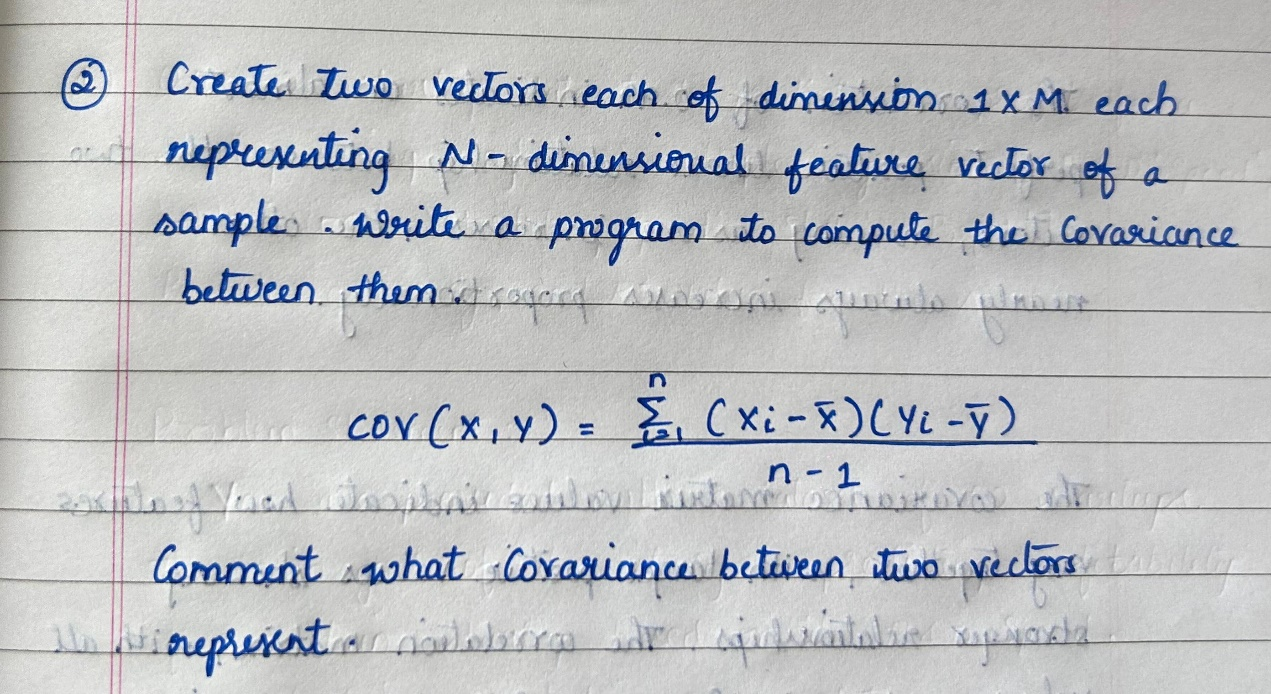 ② Create two vectors each of dimension 1 x M each
representing N - dimensional feature vector of a
sample. Write a program to compute the Covariance
between them.
cov(x, y) = \frac{\sum_{i=1}^{n} (xi - \bar{x})(yi - \bar{y})}{n - 1}
Comment what Covariance between two vectors
represent.